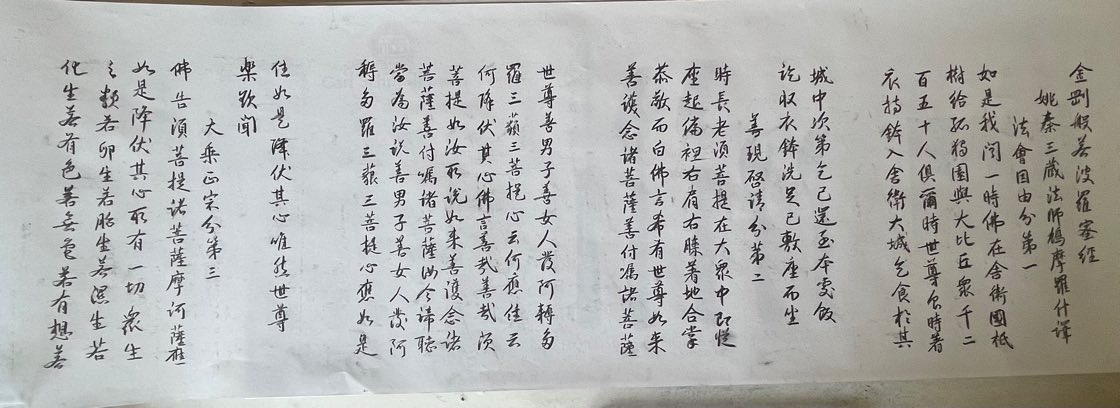 金剛般若波羅蜜經
姚秦三藏法師鳩摩羅什譯
法會因由分第一
如是我聞一時佛在舍衛國祇
樹給孤獨園與大比丘眾千二
百五十人俱爾時世尊食時著
衣持鉢入舍衛大城乞食於其
城中次第乞已還至本處飯
訖收衣鉢洗足已敷座而坐
善現啓請分第二
時長老須菩提在大眾中即從
座起偏袒右肩右膝著地合掌
恭敬而白佛言希有世尊如來
善護念諸菩薩善付囑諸菩薩
世尊善男子善女人發阿耨多
羅三藐三菩提心云何應住云
何降伏其心佛言善哉善哉須
菩提如汝所說如來善護念諸
菩薩善付囑諸菩薩汝今諦聽
當為汝說善男子善女人發阿
耨多羅三藐三菩提心應如是
住如是降伏其心唯然世尊
樂欲聞
大乘正宗分第三
佛告須菩提諸菩薩摩訶薩應
如是降伏其心所有一切眾生
之類若卵生若胎生若濕生若
化生若有色若無色若有想若